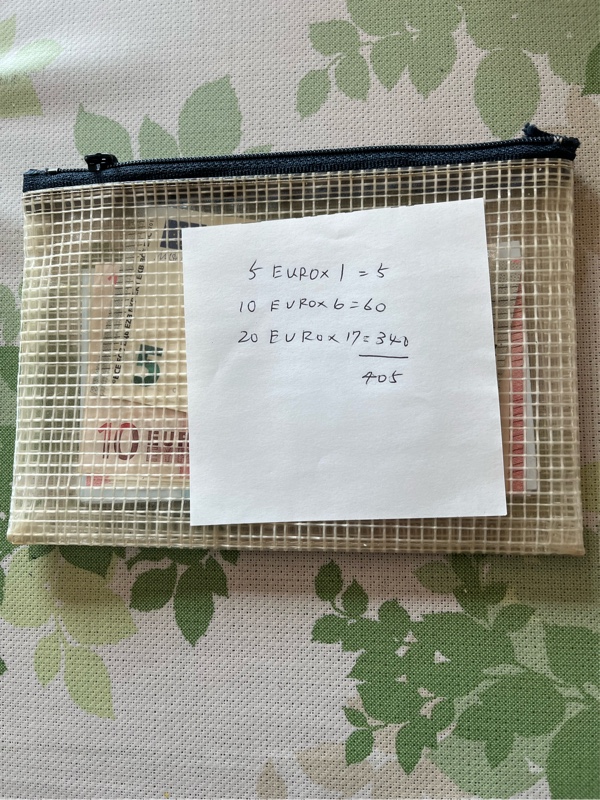 5 EURO x 1 = 5
10 EURO x 6 = 60
20 EURO x 17 = 340
405
5
10 EURO